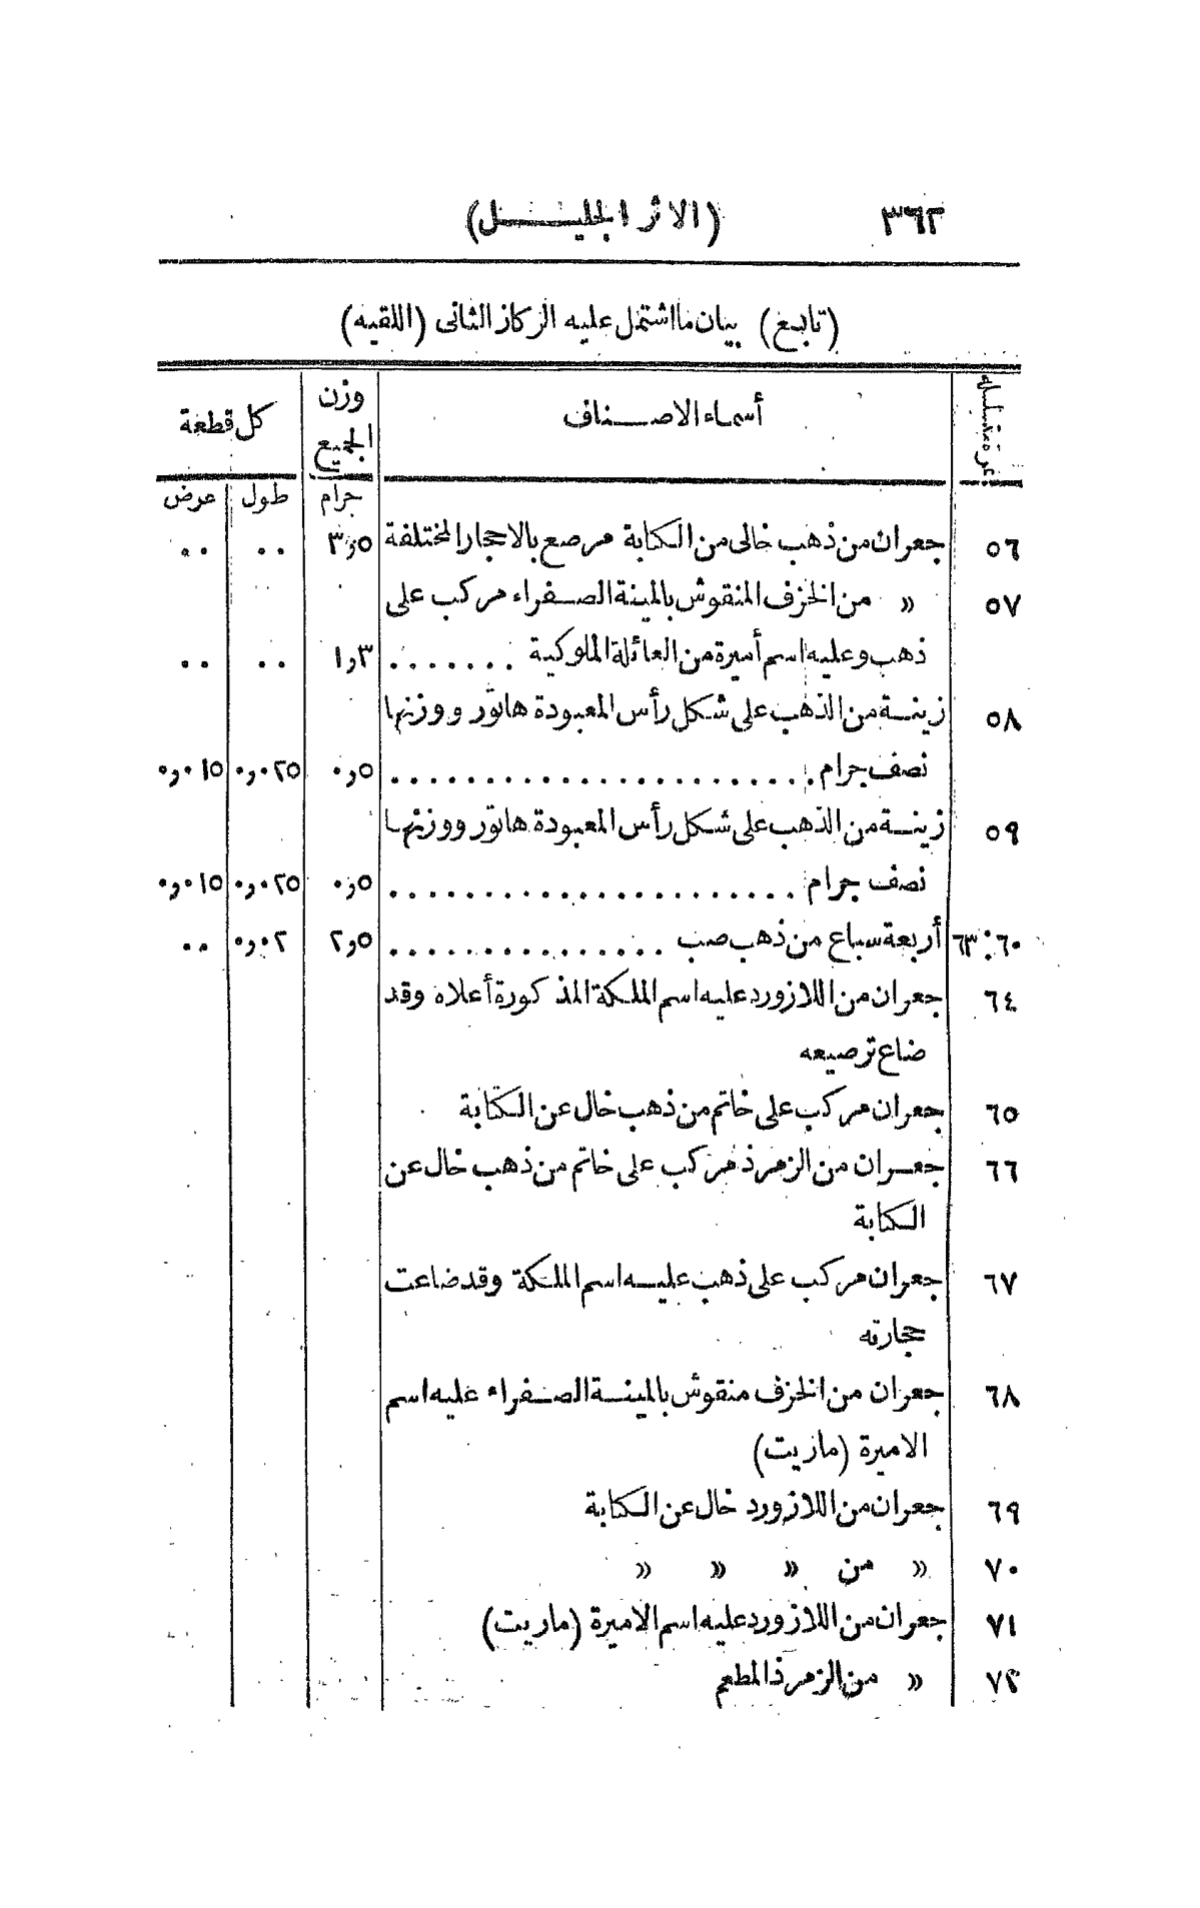 ٣٦٢ (الاثر الجليل)
(تابع) بيان ما اشتمل عليه الركاز الثانى (اللقيه)
نمرة متسلسلة أسماء الاصناف وزن الجميع كل قطعة
جرام طول عرض
٥٦ جعران من ذهب خالى من الكتابة مرصع بالاحجار المختلفة ٣٫٥ ٠٠ ٠٠
٥٧ « من الخزف المنقوش بالمينة الصفراء مركب على
ذهب وعليه اسم أميرة من العائلة الملوكية ....... ١٫٣ ٠٠ ٠٠
٥٨ زينة من الذهب على شكل رأس المعبودة هاتور ووزنها
نصف جرام ....................... ٠٫٥ ٠٫٠٢٥ ٠٫٠١٥
٥٩ زينة من الذهب على شكل رأس المعبودة هاتور ووزنها
نصف جرام ...................... ٠٫٥ ٠٫٠٢٥ ٠٫٠١٥
٦٠:٦٣ أربعة سباع من ذهب صب ............... ٢٫٥ ٠٫٠٢ ٠٠
٦٤ جعران من اللازورد عليه اسم الملكة المذكورة أعلاه وقد
ضاع ترصيعه
٦٥ جعران مركب على خاتم من ذهب خال عن الكتابة
٦٦ جعران من الزمرذ مركب على خاتم من ذهب خال عن
الكتابة
٦٧ جعران مركب على ذهب عليه اسم الملكة وقد ضاعت
حجارته
٦٨ جعران من الخزف منقوش بالمينة الصفراء عليه اسم
الاميرة (ماريت)
٦٩ جعران من اللازورد خال عن الكتابة
٧٠ « من « « «
٧١ جعران من اللازورد عليه اسم الاميرة (ماريت)
٧٢ « من الزمرذ المطعم